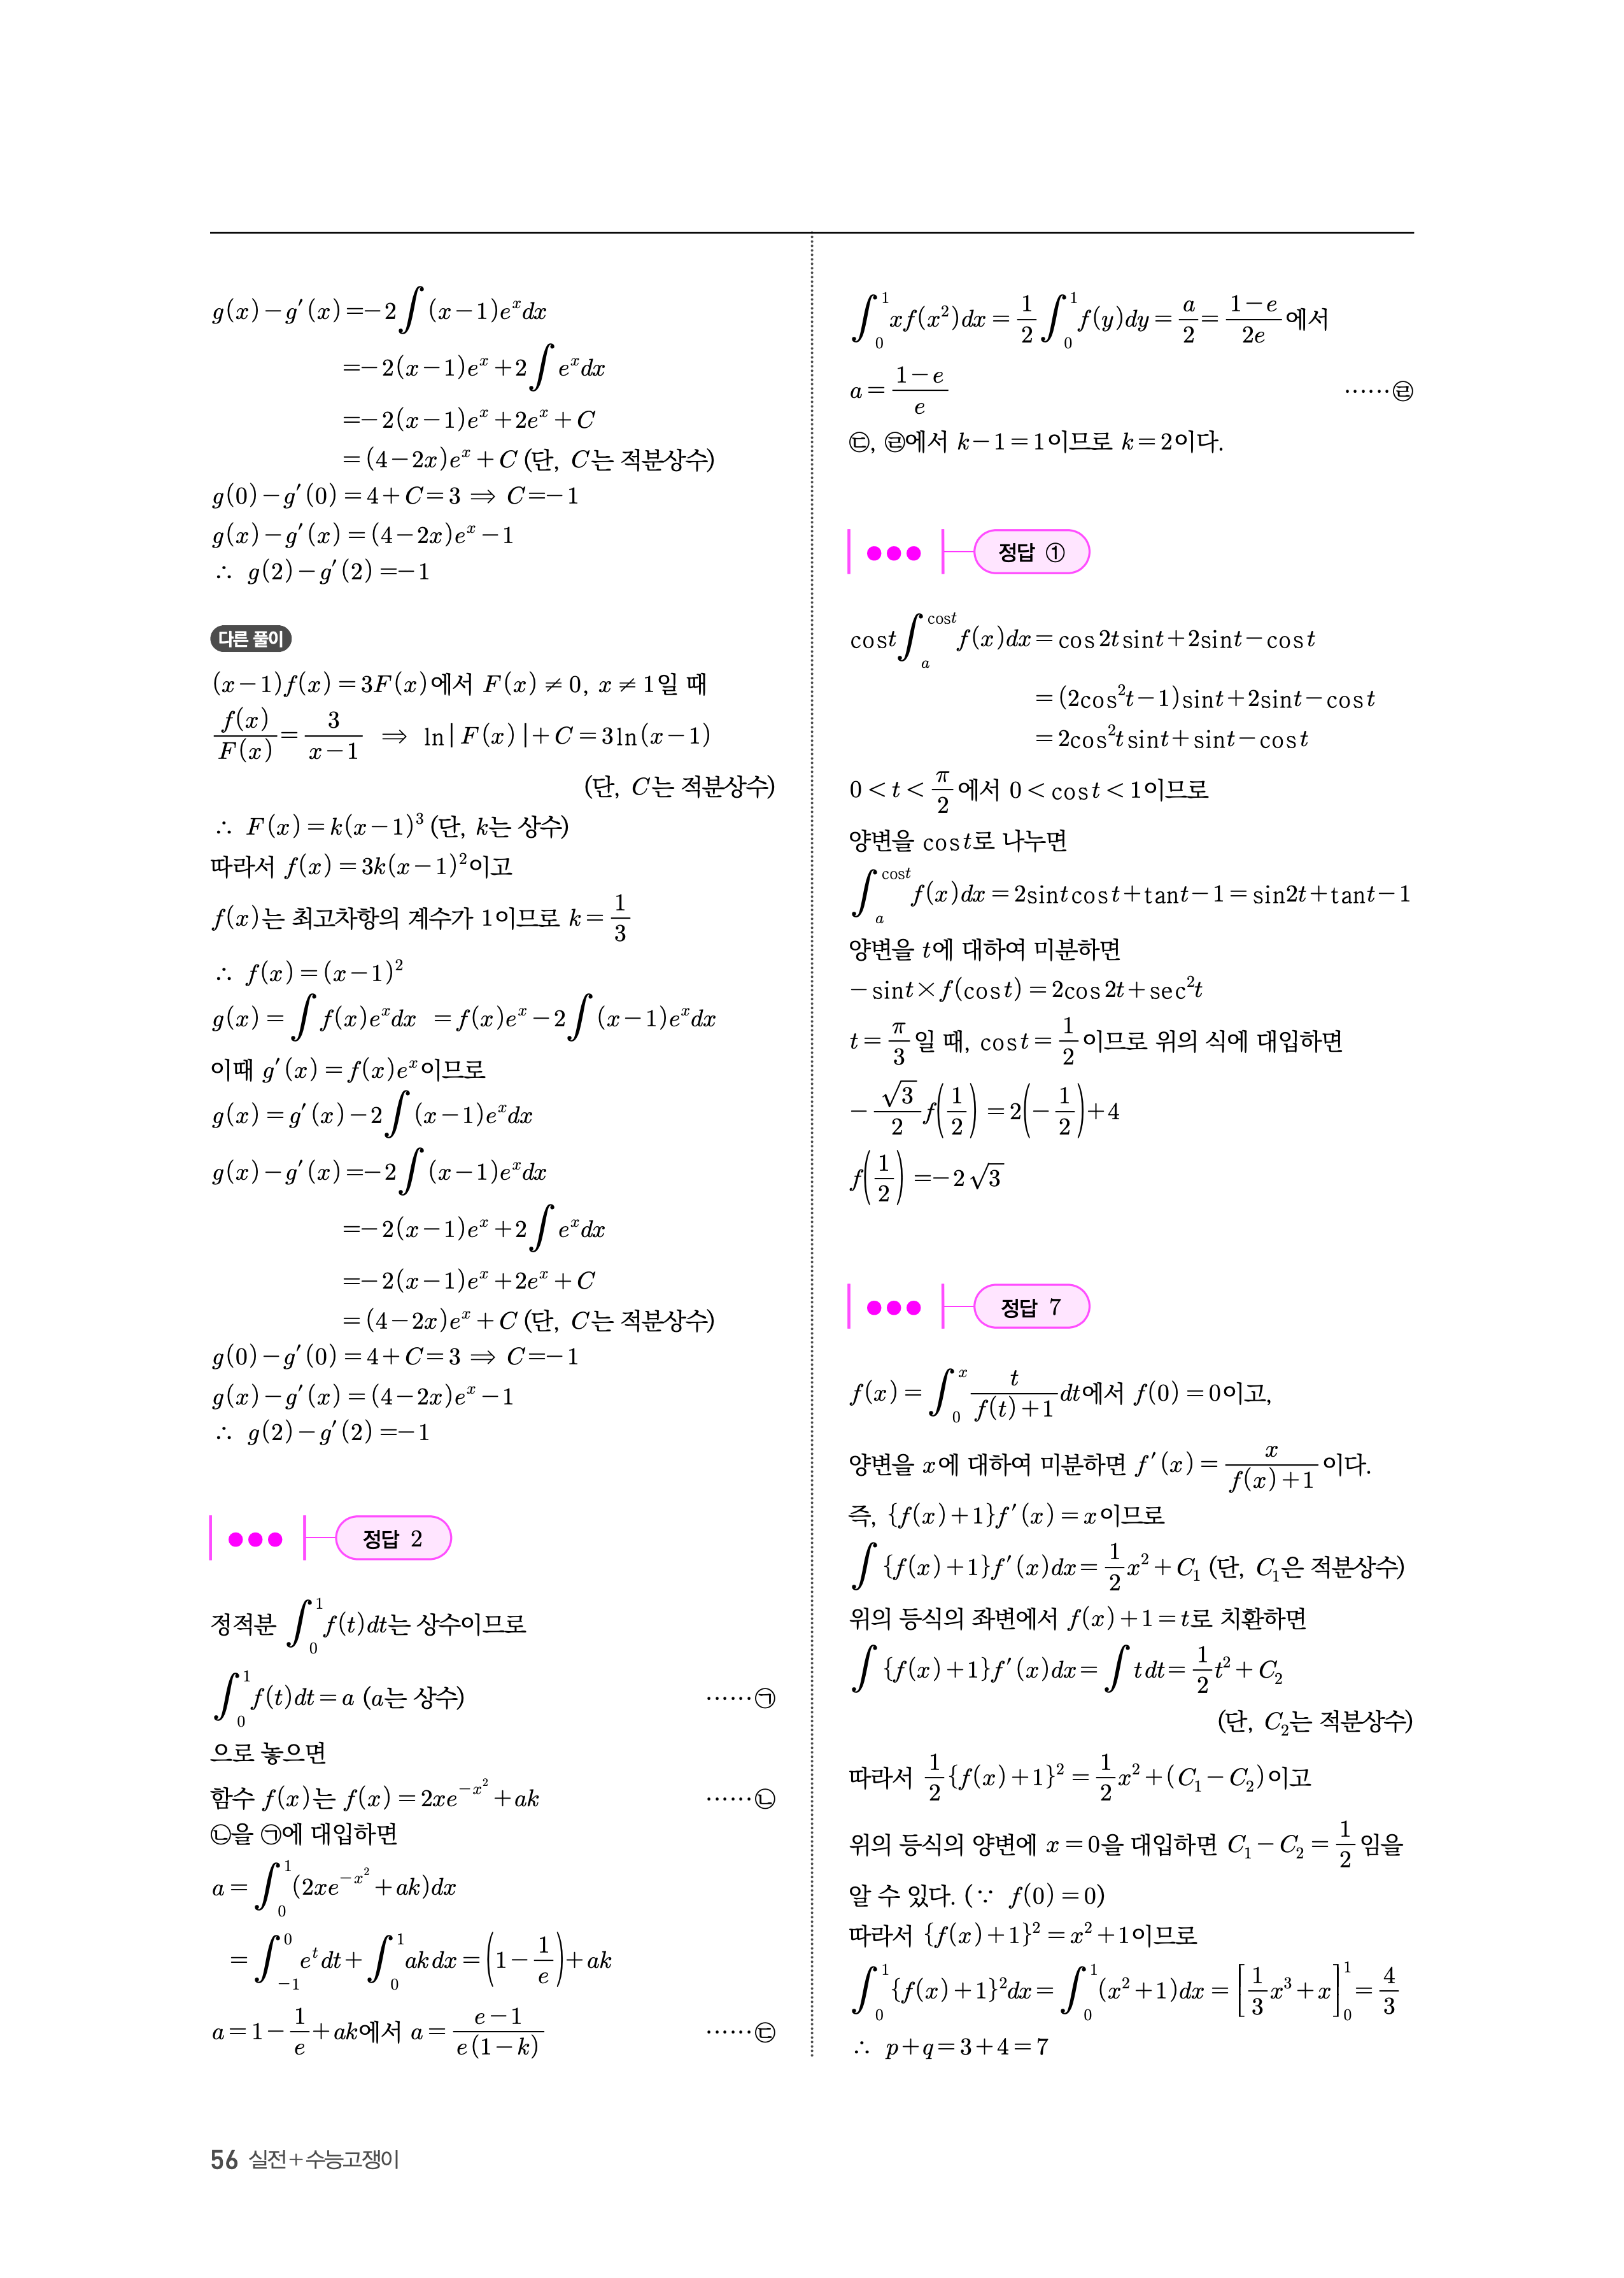 g(x)−g′(x)=−2∫(x−1)eˣdx
=−2(x−1)eˣ+2∫eˣdx
=−2(x−1)eˣ+2eˣ+C
=(4−2x)eˣ+C (단, C는 적분상수)
g(0)−g′(0)=4+C=3 ⇒ C=−1
g(x)−g′(x)=(4−2x)eˣ−1
∴ g(2)−g′(2)=−1
다른 풀이
(x−1)f(x)=3F(x)에서 F(x)≠0, x≠1일 때
f(x)/F(x)=3/(x−1) ⇒ ln|F(x)|+C=3ln(x−1)
(단, C는 적분상수)
∴ F(x)=k(x−1)³ (단, k는 상수)
따라서 f(x)=3k(x−1)²이고
f(x)는 최고차항의 계수가 1이므로 k=1/3
∴ f(x)=(x−1)²
g(x)=∫f(x)eˣdx =f(x)eˣ−2∫(x−1)eˣdx
이때 g′(x)=f(x)eˣ이므로
g(x)=g′(x)−2∫(x−1)eˣdx
g(x)−g′(x)=−2∫(x−1)eˣdx
=−2(x−1)eˣ+2∫eˣdx
=−2(x−1)eˣ+2eˣ+C
=(4−2x)eˣ+C (단, C는 적분상수)
g(0)−g′(0)=4+C=3 ⇒ C=−1
g(x)−g′(x)=(4−2x)eˣ−1
∴ g(2)−g′(2)=−1
정답 2
정적분 ∫₀¹f(t)dt는 상수이므로
∫₀¹f(t)dt=a (a는 상수) ……㉠
으로 놓으면
함수 f(x)는 f(x)=2xe^(−x²)+ak ……㉡
㉡을 ㉠에 대입하면
a=∫₀¹(2xe^(−x²)+ak)dx
=∫₋₁⁰eᵗdt+∫₀¹akdx=(1−1/e)+ak
a=1−1/e+ak에서 a=(e−1)/(e(1−k)) ……㉢
∫₀¹xf(x²)dx=1/2∫₀¹f(y)dy=a/2=(1−e)/2e에서
a=(1−e)/e ……㉣
㉢, ㉣에서 k−1=1이므로 k=2이다.
정답 ①
cost∫ₐ^(cost)f(x)dx=cos2tsint+2sint−cost
=(2cos²t−1)sint+2sint−cost
=2cos²tsint+sint−cost
0<t<π/2에서 0<cost<1이므로
양변을 cost로 나누면
∫ₐ^(cost)f(x)dx=2sintcost+tant−1=sin2t+tant−1
양변을 t에 대하여 미분하면
−sint×f(cost)=2cos2t+sec²t
t=π/3일 때, cost=1/2이므로 위의 식에 대입하면
−(√3/2)f(1/2)=2(−1/2)+4
f(1/2)=−2√3
정답 7
f(x)=∫₀ˣ t/(f(t)+1)dt에서 f(0)=0이고,
양변을 x에 대하여 미분하면 f′(x)=x/(f(x)+1)이다.
즉, {f(x)+1}f′(x)=x이므로
∫{f(x)+1}f′(x)dx=1/2x²+C₁ (단, C₁은 적분상수)
위의 등식의 좌변에서 f(x)+1=t로 치환하면
∫{f(x)+1}f′(x)dx=∫tdt=1/2t²+C₂
(단, C₂는 적분상수)
따라서 1/2{f(x)+1}²=1/2x²+(C₁−C₂)이고
위의 등식의 양변에 x=0을 대입하면 C₁−C₂=1/2임을
알 수 있다. (∵ f(0)=0)
따라서 {f(x)+1}²=x²+1이므로
∫₀¹{f(x)+1}²dx=∫₀¹(x²+1)dx=[1/3x³+x]₀¹=4/3
∴ p+q=3+4=7
56 실전+수능고쟁이